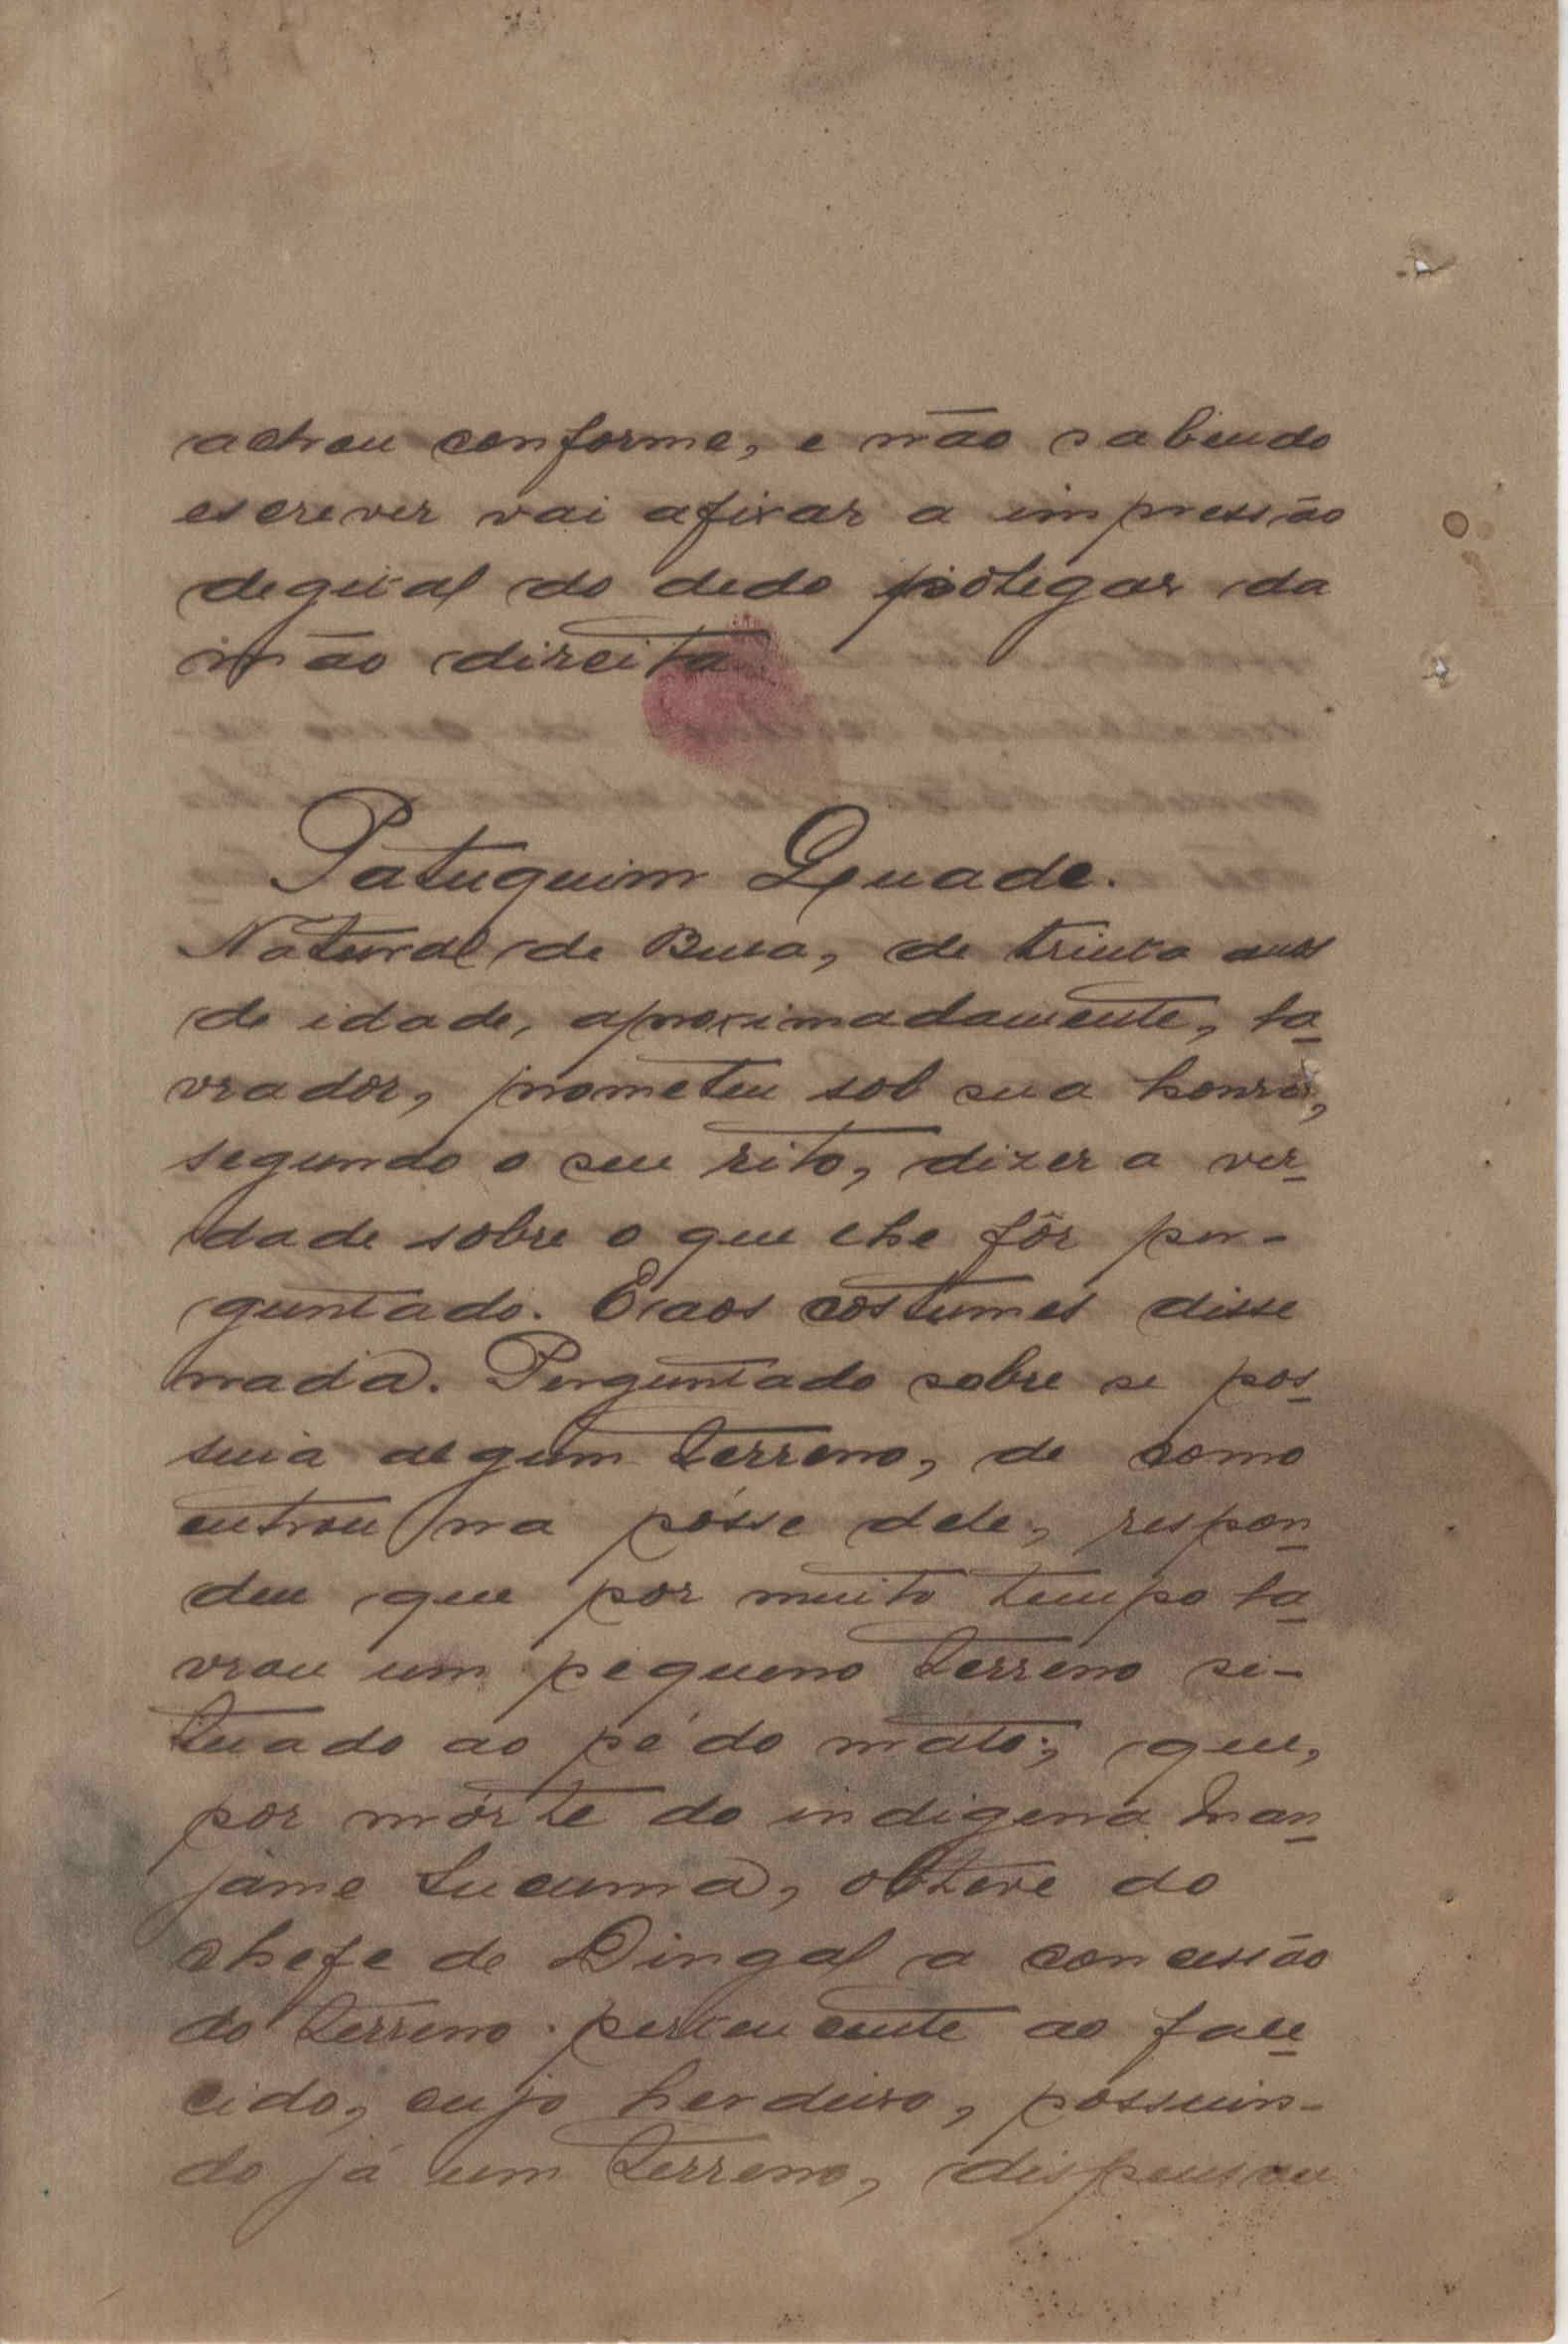 achou conforme, e não sabendo
escrever vai afixar a impressão
degital do dedo polegar da
mão direita
Patuquim Quade.
Natural de Bula, de trinta anos
de idade, aproximadamente, la_
vrador, prometeu sob sua honra,
segundo o seu rito, dizer a ver_
dade sobre o que lhe fôr per-
guntado. E aos costumes disse
nada. Perguntado sobre se pos_
suia algum terreno, de como
entrou na pósse dele, respon_
deu que por muito tempo la_
vrou um pequeno terreno si-
tuado ao pé do mato; que,
por mórte do indigena Man_
jame Lucuma, obteve do
chefe de Dingal a concessão
do terreno pertencente ao fale_
cido, cujo herdeiro, possuin-
do já um terreno, dispensou